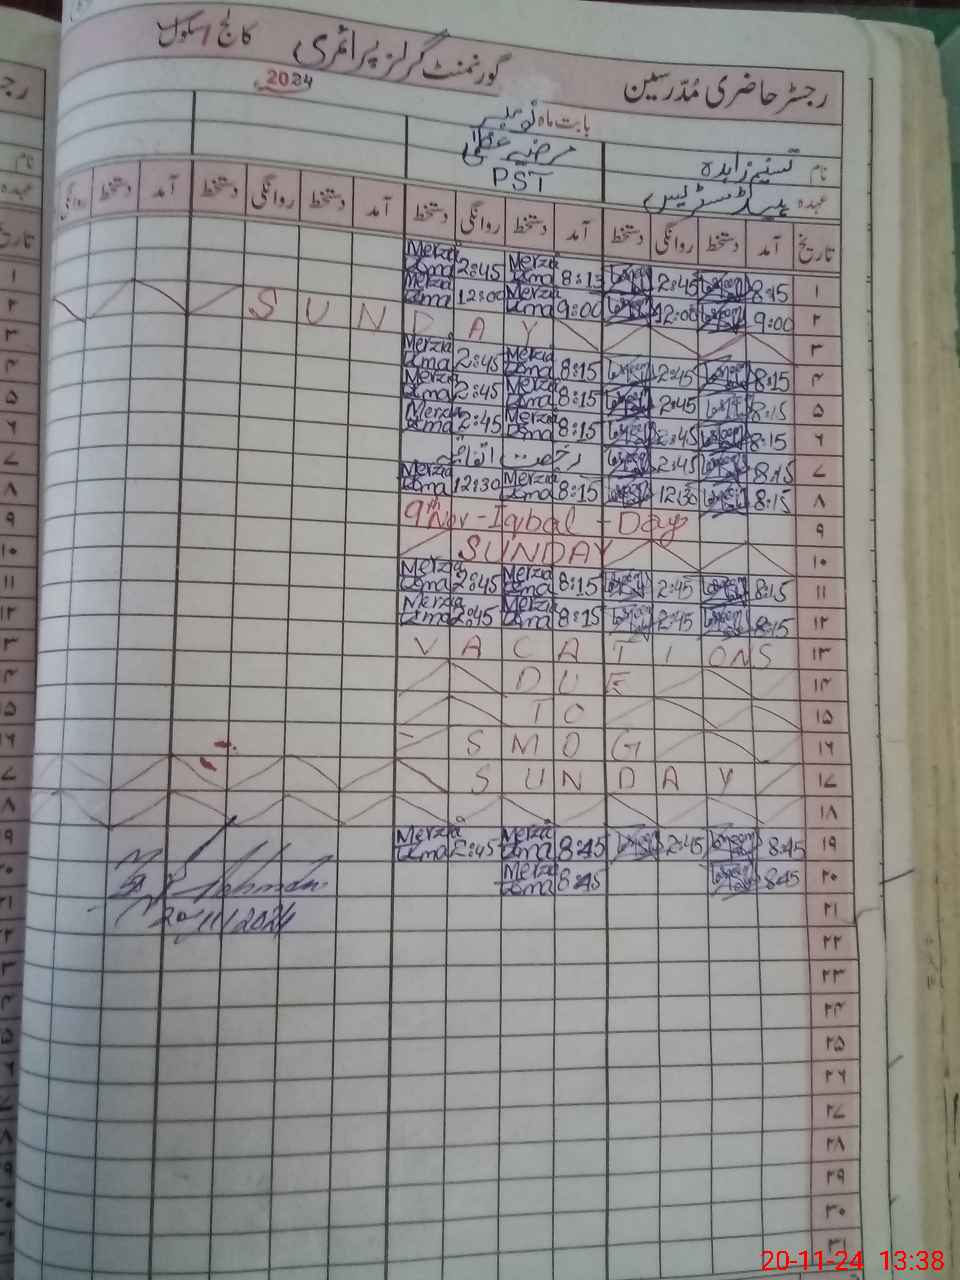 رجسٹر حاضری مدرسین گورنمنٹ گرلز پرائمری کالج / سکول
2024
بابت ماہ نومبر
نام تسنیم زاہدہ مرضیہ عظمیٰ
عہدہ ہیڈ مسٹریس PST
تاریخ آمد دستخط روانگی دستخط آمد دستخط روانگی دستخط آمد دستخط روانگی دستخط آمد دستخط روانگی
۱ 8:45 2:45 8:15 Merzia Uzma 2:45 Merzia Uzma
۲ 9:00 12:00 9:00 Merzia Uzma 12:00 Merzia Uzma
۳ SUNDAY
۴ 8:15 2:45 8:15 Merzia Uzma 2:45 Merzia Uzma
۵ 8:15 2:45 8:15 Merzia Uzma 2:45 Merzia Uzma
۶ 8:15 2:45 8:15 Merzia Uzma 2:45 Merzia Uzma
۷ 8:15 2:45 رخصت اتفاقیہ
۸ 8:15 12:30 8:15 Merzia Uzma 12:30 Merzia Uzma
۹ 9th Nov - Iqbal - Day
۱۰ SUNDAY
۱۱ 8:15 2:45 8:15 Merzia Uzma 2:45 Merzia Uzma
۱۲ 8:15 2:45 8:15 Merzia Uzma 2:45 Merzia Uzma
۱۳ VACATIONS
۱۴ DUE
۱۵ TO
۱۶ SMOG
۱۷ SUNDAY
۱۸
۱۹ 8:45 2:45 8:45 Merzia Uzma 2:45 Merzia Uzma
۲۰ 8:45 8:45 Merzia Uzma
۲۱
20/11/2024
۲۲
۲۳
۲۴
۲۵
۲۶
۲۷
۲۸
۲۹
۳۰
۳۱
20-11-24 13:38